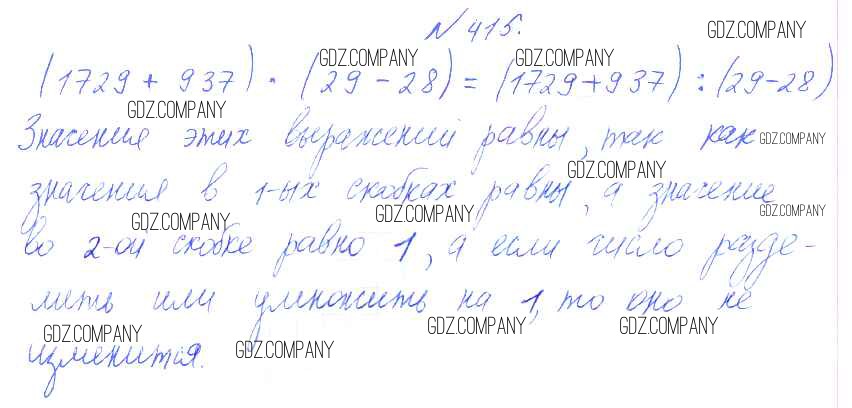 № 415.
GDZ.COMPANY
GDZ.COMPANY GDZ.COMPANY
(1729 + 937) · (29 - 28) = (1729 + 937) : (29 - 28)
GDZ.COMPANY
Значения этих выражений равны, так как
GDZ.COMPANY
GDZ.COMPANY
значения в 1-ых скобках равны, а значение
GDZ.COMPANY GDZ.COMPANY GDZ.COMPANY
во 2-ой скобке равно 1, а если число разде-
лить или умножить на 1, то оно не
GDZ.COMPANY GDZ.COMPANY GDZ.COMPANY
изменится.
GDZ.COMPANY